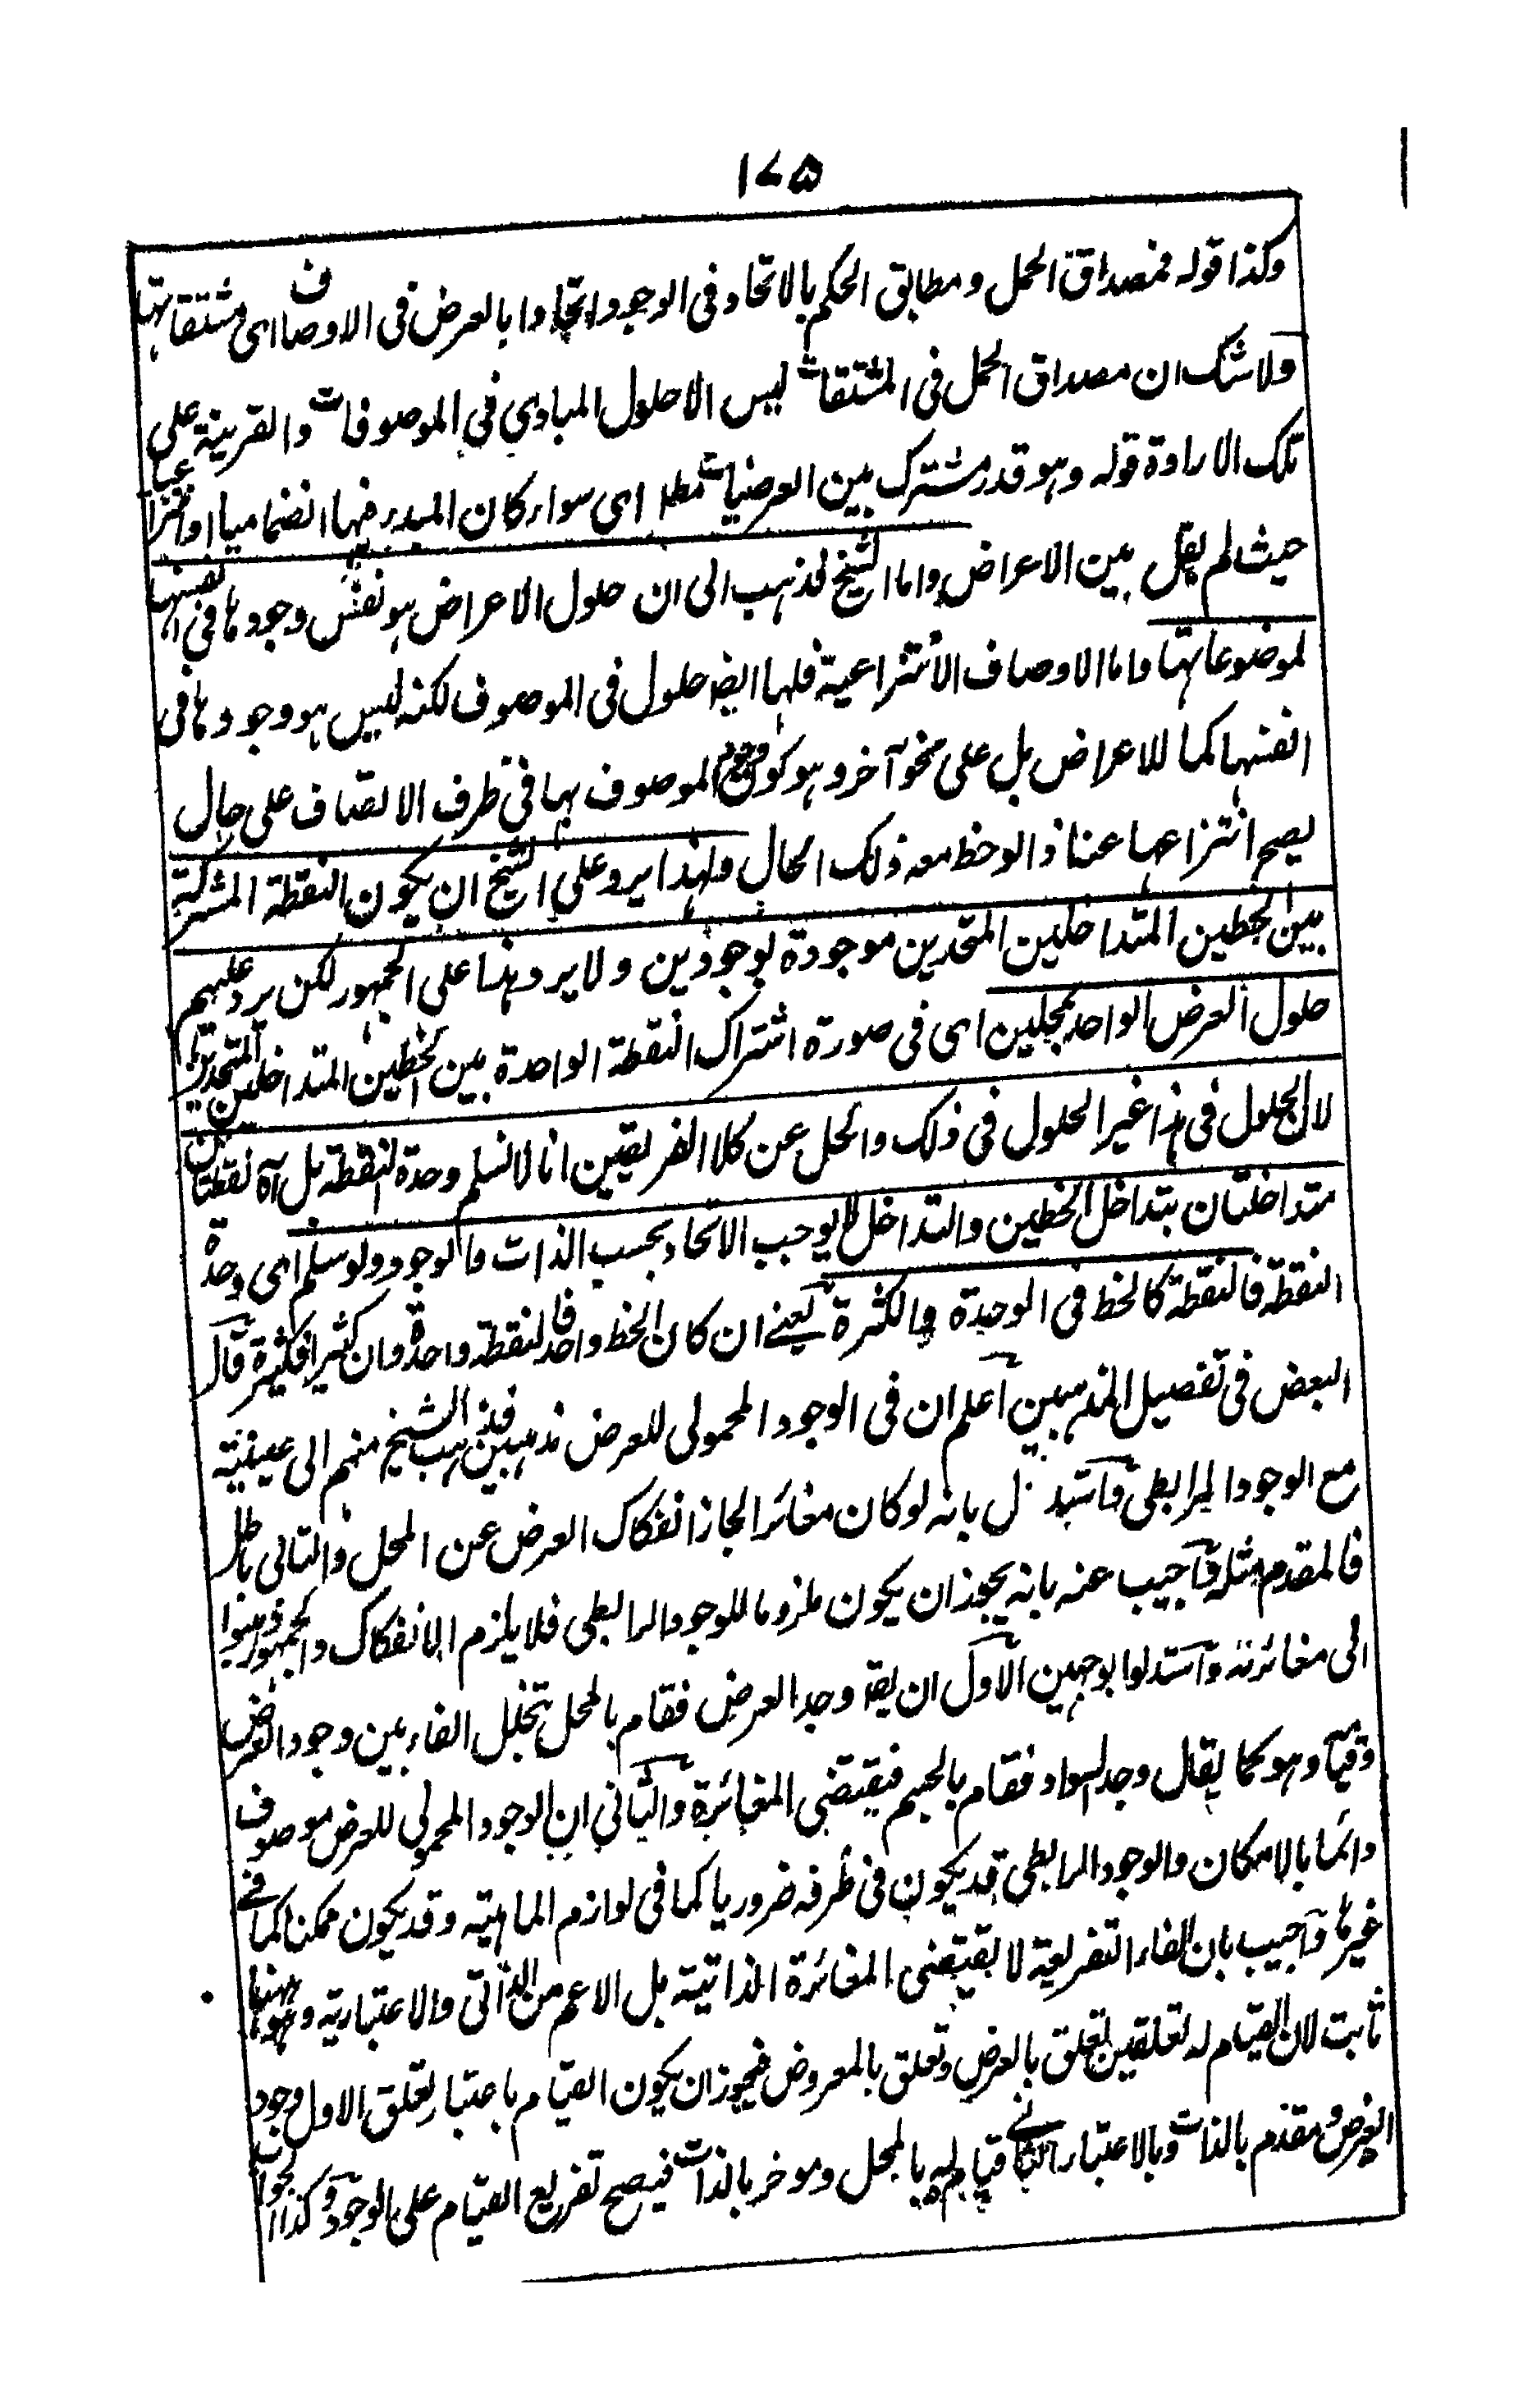 ١٧٥
وكذا قوله فمصداق الحمل ومطابق الحكم بالاتحاد فى الوجود اتحادا بالعرض فى الاوصاف اى مشتقاتها
ولا شك ان مصداق الحمل فى المشتقات ليس الا حلول المبادي في الموصوفات والقرينة على
تلك الارادة قوله وهو قدر مشترك بين العرضيات مطلقا اى سواء كان المبدء فيها انضماميا او انتزاعيا
حيث لم يقل بين الاعراض واما الشيخ فذهب الى ان حلول الاعراض هو نفس وجودها فى انفسها
لموضوعاتها واما الاوصاف الانتزاعية فلها ايض حلول فى الموصوف لكنه ليس هو وجودها فى
انفسها كما للاعراض بل على نحو آخر وهو كون الموصوف بها فى ظرف الاتصاف على حال
يصح انتزاعها عنها اذا لوحظ معه ذلك الحال ولهذا يرد على الشيخ ان يكون النقطة المشتركة
بين الخطين المتداخلين المتحدين موجودة بوجودين ولا يرد هذا على الجمهور لكن يرد عليهم
حلول العرض الواحد بمحلين اى فى صورة اشتراك النقطة الواحدة بين الخطين المتداخلين المتحدين
لان الحلول فى هذا غير الحلول فى ذلك والحل عن كلا الفريقين انا لا نسلم وحدة النقطة بل آه نقطتان
متداخلتان بتداخل الخطين والتداخل لا يوجب الاتحاد بحسب الذات والوجود ولو سلم اى وحدة
النقطة فالنقطة كالخط فى الوحدة والكثرة يعنے ان كان الخط واحدا فالنقطة واحدة وان كثيرا فكثيرة قال
البعض فى تفصيل المذهبين اعلم ان فى الوجود المحمولى للعرض مذهبين فذهب الشيخ منهم الى عينيته
مع الوجود الرابطى واستدل بانه لو كان مغائرا لجاز انفكاك العرض عن المحل والتالى باطل
فالمقدم مثله واجيب عنه بانه يجوز ان يكون ملزوما للوجود الرابطى فلا يلزم الانفكاك والجمهور ذهبوا
الى مغائرته واستدلوا بوجهين الاول ان يقه وجد العرض فقام بالمحل بتخلل الفاء بين وجود العرض
وقيامه وهو كما يقال وجد السواد فقام بالجسم فيقتضى المغائرة والثاني ان الوجود المحمولى للعرض موصوف
دائما بالامكان والوجود الرابطى قد يكون فى ظرفه ضروريا كما فى لوازم الماهية وقد يكون ممكنا كما فے
غيرها واجيب بان الفاء التفريعية لا يقتضى المغائرة الذاتية بل الاعم من الذاتى والاعتبارية وهو ههنا
ثابت لان القيام له تعلقين تعلق بالعرض وتعلق بالمعروض فيجوز ان يكون القيام باعتبار تعلق الاول وجود
العرض ومقدم بالذات وبالاعتبار الثانے قيامه بالمحل وموخر بالذات فيصح تفريع القيام على الوجود وكذا الجواب